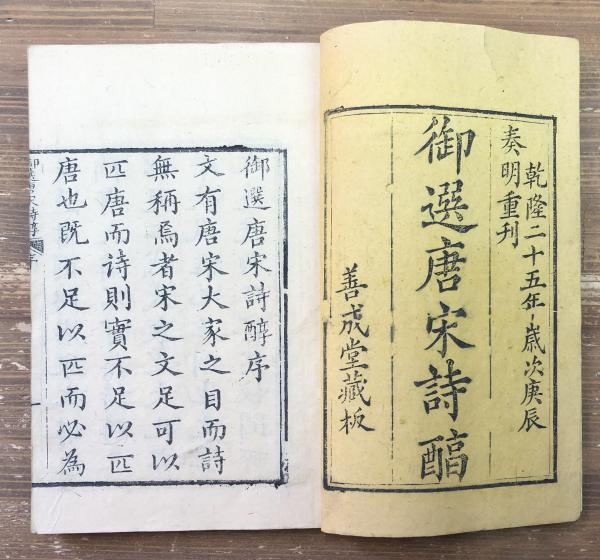 乾隆二十五年歲次庚辰
奏明重刊
御選唐宋詩醕
善成堂藏板
御選唐宋詩醇序
文有唐宋大家之目而詩
無稱焉者宋之文足可以
匹唐而詩則實不足以匹
唐也既不足以匹而必為
御選唐宋詩醇
序
一